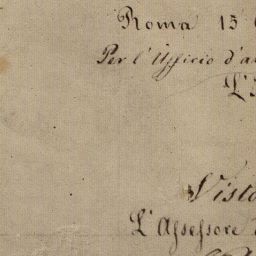 Roma 15
Per l'Ufficio d'a
L'
Visto
L'Assessore